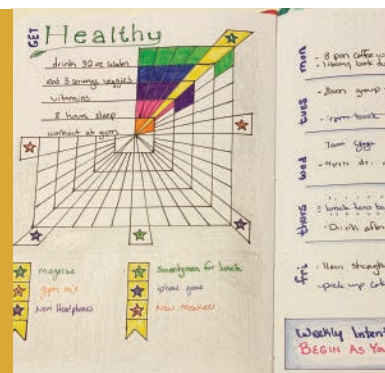 GET Healthy
drink 32 oz water
eat 3 servings veggies
vitamins
8 hours sleep
workout at gym
magazine
gym mix
New Headphones
Sweetgreen for lunch
iphone game
New sneakers
mon
- 3 pm coffee w
- library book du
tues
- 8am group
book
wed
7am Yoga
- 4pm dr.
thurs
lunch
- Drink after
fri
11am strength
- pick up
Weekly Intent
BEGIN AS YOU